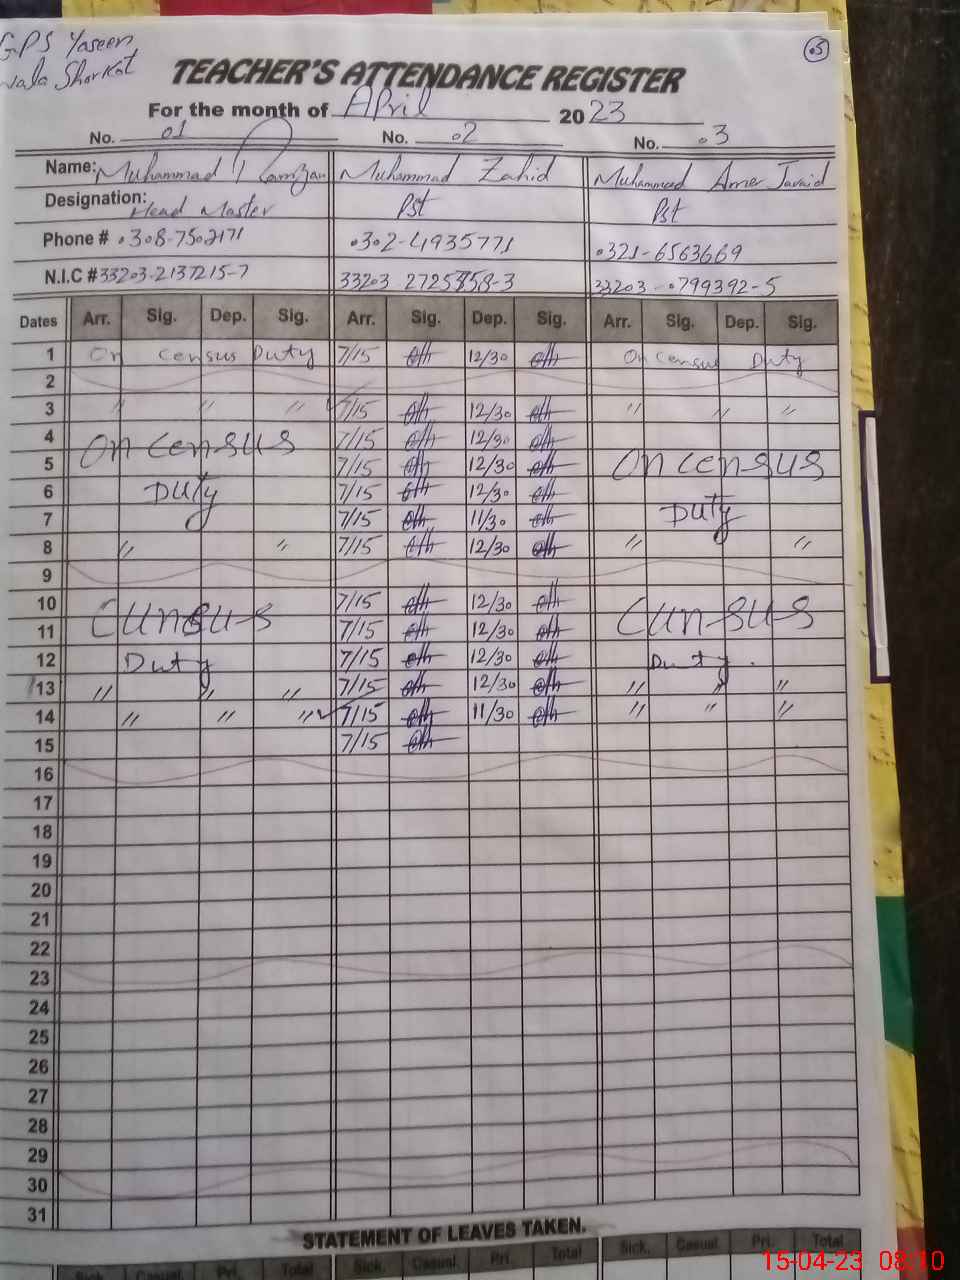 GPS Yaseen
Wala Shorkot
03
TEACHER'S ATTENDANCE REGISTER
For the month of April 2023
No. 01 No. 02 No. 03
Name: Muhammad Ramzan Muhammad Zahid Muhammad Amer Javaid
Designation: Head Master Pst Pst
Phone # 0308-7502171 0302-4935771 0321-6563669
N.I.C # 33203-2137215-7 33203 2725858-3 33203-0799392-5
Dates Arr. Sig. Dep. Sig. Arr. Sig. Dep. Sig. Arr. Sig. Dep. Sig.
1 On Census Duty 7/15 12/30 On Census Duty
2
3 " " " 7/15 12/30 " " "
4 On Census 7/15 12/30
5 7/15 12/30 On Census
6 Duty 7/15 12/30
7 7/15 11/30 Duty
8 " " 7/15 12/30 " "
9
10 Cunsus 7/15 12/30 Cunsus
11 7/15 12/30
12 Duty 7/15 12/30 Duty.
13 " " " 7/15 12/30 " " "
14 " " " 7/15 11/30 " " "
15 7/15
16
17
18
19
20
21
22
23
24
25
26
27
28
29
30
31
STATEMENT OF LEAVES TAKEN.
Sick. Casual Pri. Total Sick. Casual Pri. Total Sick. Casual Pri. Total
15-04-23 08:10